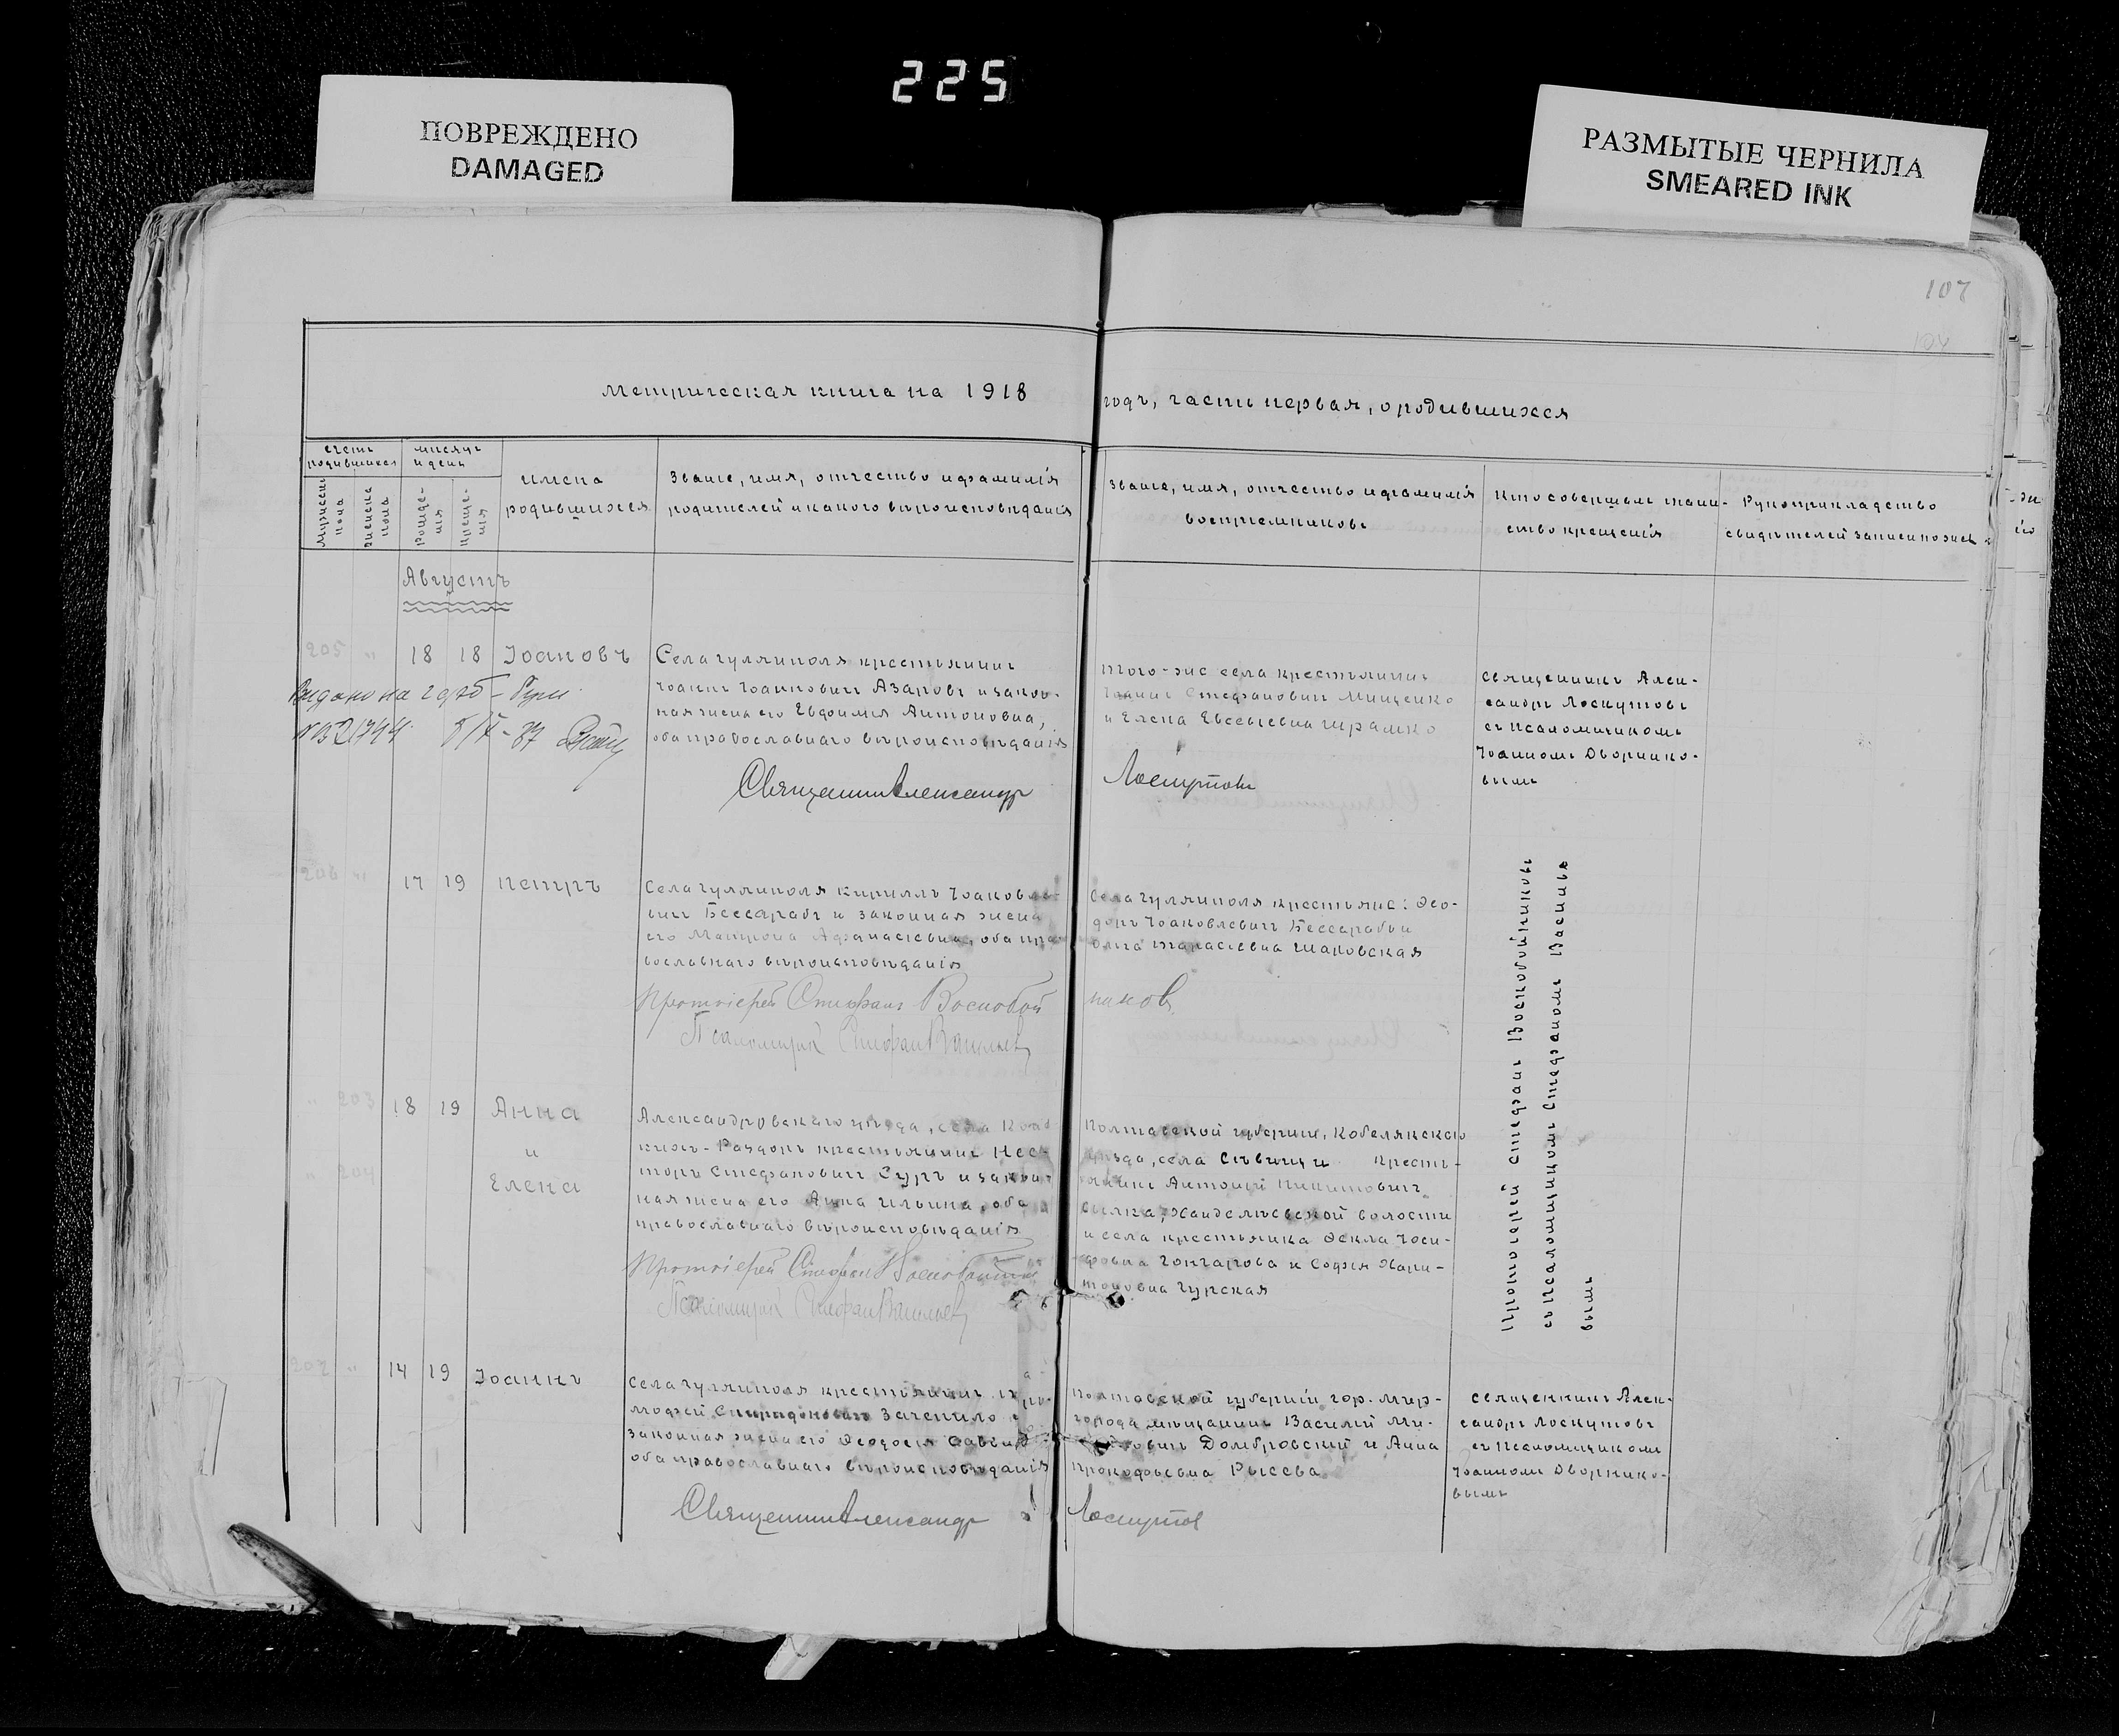 225
ПОВРЕЖДЕНО
DAMAGED
РАЗМЫТЫЕ ЧЕРНИЛА
SMEARED INK
107
Метрическая книга на 1918
годъ, часть первая, о родившихся
счетъ родившихся
мѣсяцъ и день
мужеска пола
женска пола
рожденія
крещенія
имена
родившихся
Званіе, имя, отчество и фамилія
родителей и какого вѣроисповѣданія
Званіе, имя, отчество и фамилія
воспріемниковъ
Кто совершалъ таин-
ство крещенія
Рукоприкладство
свидѣтелей записи
Августъ
205 " 18 18 Іоаннъ
Села Гуляйполя крестьянинъ
Іоаннъ Іоанновичъ Азаровъ и закон-
ная жена его Евфимія Антоновна,
оба православнаго вѣроисповѣданія
Священникъ Александръ
того-же села крестьянинъ
Іоаннъ Стефановичъ Мищенко
и Елена Евсеьевна Шрамко
Лоскутовъ
священникъ Алек-
сандръ Лоскутовъ
съ псаломщикомъ
Іоанномъ Дворнико-
вымъ
206 " 17 19 Петръ
Села Гуляйполя Кириллъ Іаковле-
вичъ Бессарабъ и законная жена
его Матрона Афанасіевна, оба пра-
вославнаго вѣроисповѣданія
Протоіерей Стефанъ Воскобой
Псаломщикъ Стефанъ Васильев
Села Гуляйполя крестьяне: Ѳео-
доръ Іаковлевичъ Бессарабъ и
Ольга Тарасіевна Шаковская
никовъ
Протоіерей Стефанъ Воскобойниковъ
съ псаломщикомъ Стефаномъ Василье-
вымъ
" 203 18 19 Анна
и
" 204 Елена
Александровскаго уѣзда, села
Раздоръ крестьянинъ Нес-
торъ Стефановичъ Суръ и закон-
ная жена его Анна Ильина, оба
православнаго вѣроисповѣданія
Протоіерей Стефанъ Воскобойник
Псаломщикъ Стефанъ Васильев
Полтавской губерніи, Кобелякскаго
уѣзда, села крестъ-
янинъ Антоній Никитовичъ
волости
и села крестьянка Ѳекла Іоси-
фовна Гончарова и Софія Хари-
тоновна Гурская
207 " 14 19 Іоаннъ
Села Гуляйполя крестьянинъ
Спиридоновичъ Зачепило
законная жена его Ѳеодосія
оба православнаго вѣроисповѣданія
Священникъ Александръ
Полтавской губерніи гор. Мир-
города мѣщанинъ Василій
Домбровскій и Анна
Прокофьевна Рысева
Лоскутов
священникъ Алек-
сандръ Лоскутовъ
съ псаломщикомъ
Іоанномъ Дворнико-
вымъ